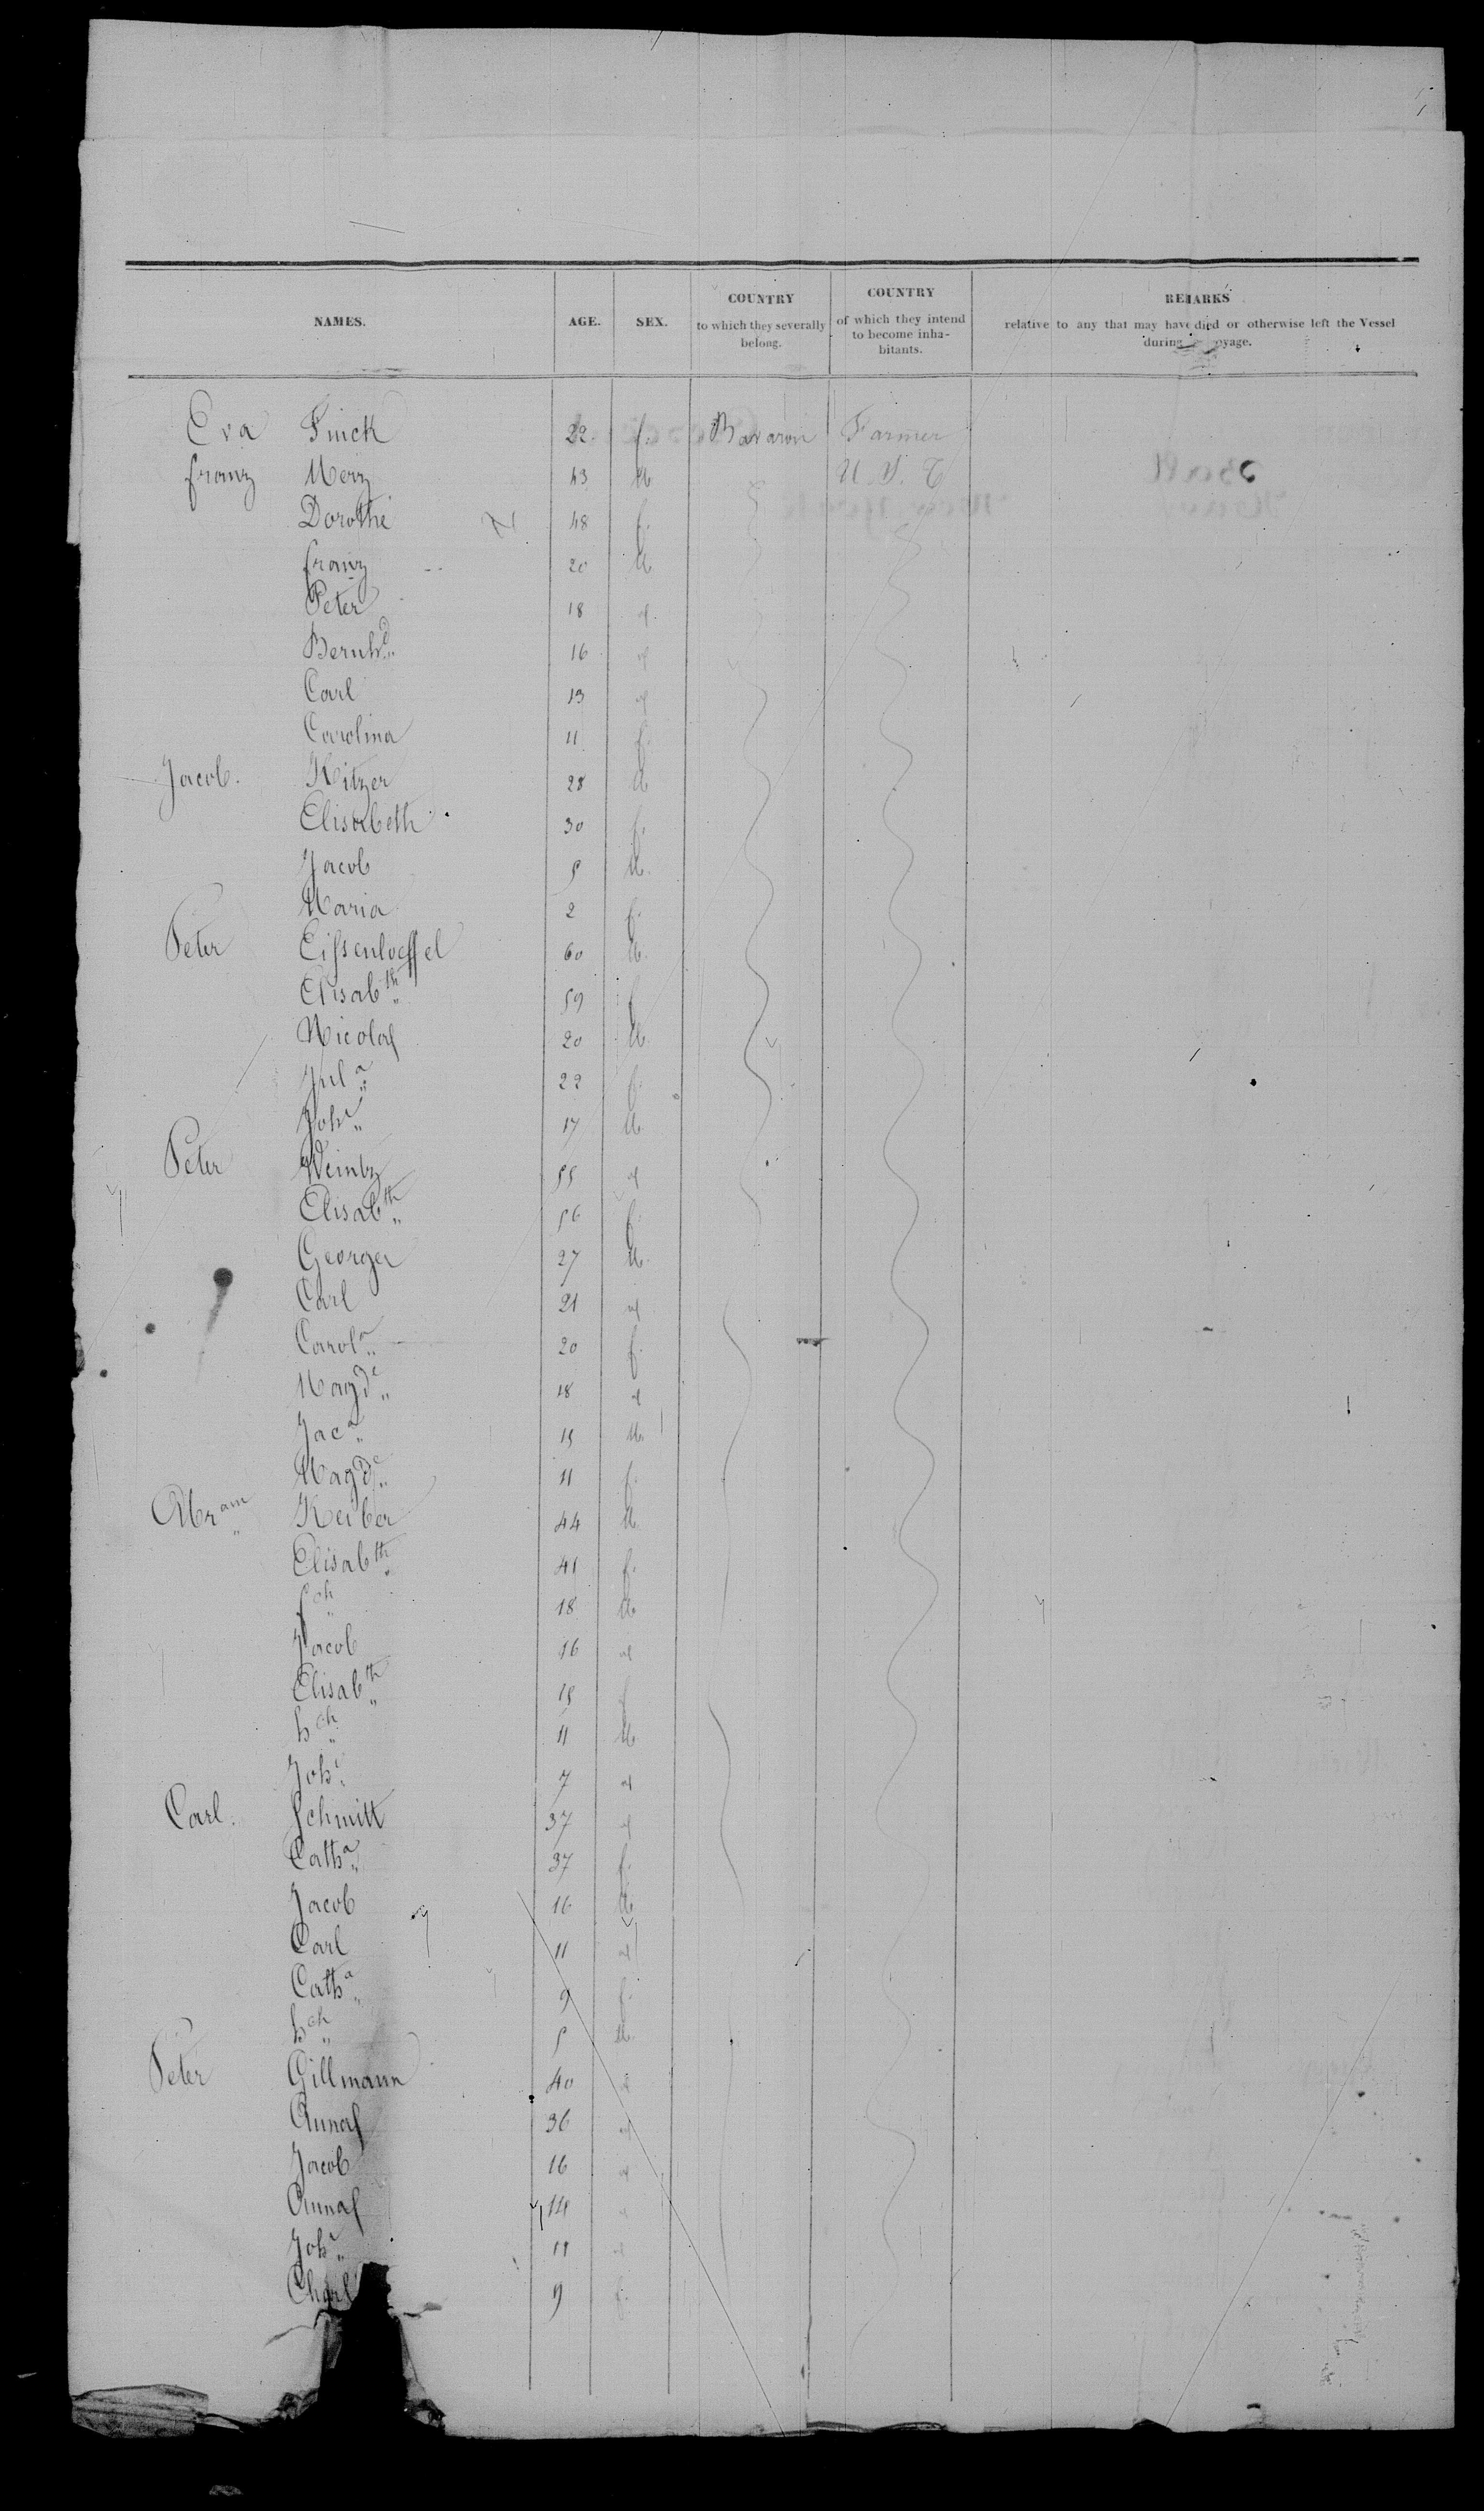 NAMES. AGE. SEX. COUNTRY to which they severally belong. COUNTRY of which they intend to become inhabitants. REMARKS relative to any that may have died or otherwise left the Vessel during oyage.
Eva Finck 22 f. Bavaron Farmer
franz Merz 43 M U. S. T
Dorothe 48 f.
franz 20 M
Peter 18 "
Bernhd 16 "
Carl 13 "
Carolina 11 f.
Jacob. Kitzer 28 M
Elisabeth 30 f.
Jacob 5 M.
Maria 2 f.
Peter Eissenloeffel 60 M.
Elisabth 59 f
Nicolas 20 M
Jula 22 f.
John 17 M
Peter Weintz 55 "
Elisabth 56 f.
George 27 M.
Carl 21 "
Carola 20 f.
Magde 18 "
Jac 15 M.
Magde 11 f.
Abram Keiber 44 M
Elisabth 41 f.
18 M
Jacob 16 "
Elisabth 15 f
hch 11 M
Joh 7 "
Carl. Schmitt 37 "
Catha 37 f.
Jacob 16 M
Carl 11 "
Catha 9 f.
hch 5 M.
Peter Gillmann 40 "
Anna 36 "
Jacob 16 "
Anna 14 "
Joh 11 "
Charl 9 f.